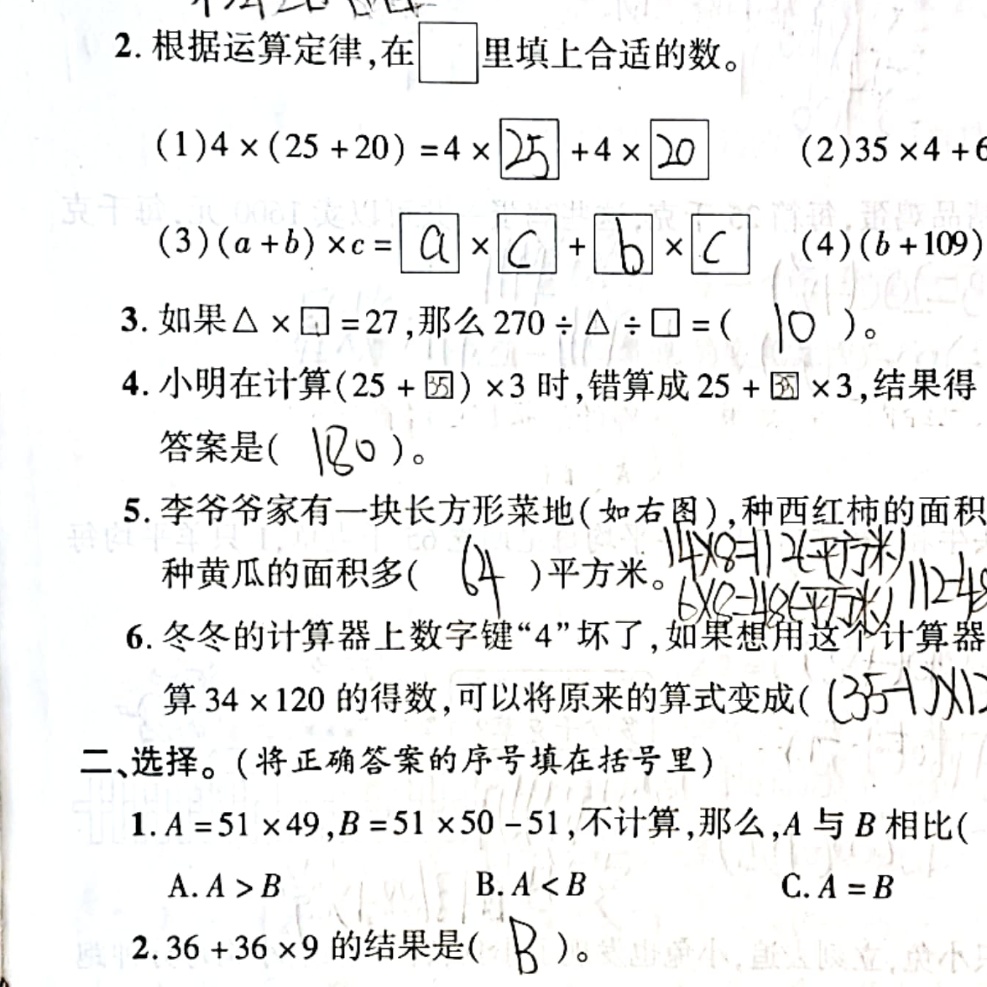 2. 根据运算定律,在□里填上合适的数。
(1)4×(25+20)=4×25+4×20 (2)35×4+6
(3)(a+b)×c=a×c+b×c (4)(b+109)
3. 如果△×□=27,那么270÷△÷□=( 10 )。
4. 小明在计算(25+35)×3时,错算成25+35×3,结果得
答案是( 180 )。
5. 李爷爷家有一块长方形菜地(如右图),种西红柿的面积
14×8=112(平方米)
种黄瓜的面积多( 64 )平方米。
6×8=48(平方米) 112-48
6. 冬冬的计算器上数字键“4”坏了,如果想用这个计算器
算34×120的得数,可以将原来的算式变成( (35-1)×12
二、选择。(将正确答案的序号填在括号里)
1. A=51×49,B=51×50-51,不计算,那么,A与B相比(
A. A>B B. A<B C. A=B
2. 36+36×9的结果是( B )。